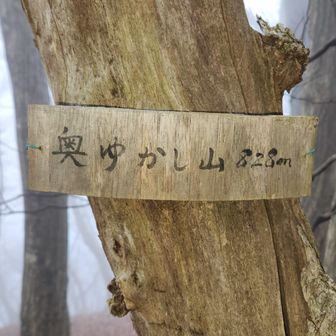 奥ゆかし山 828m